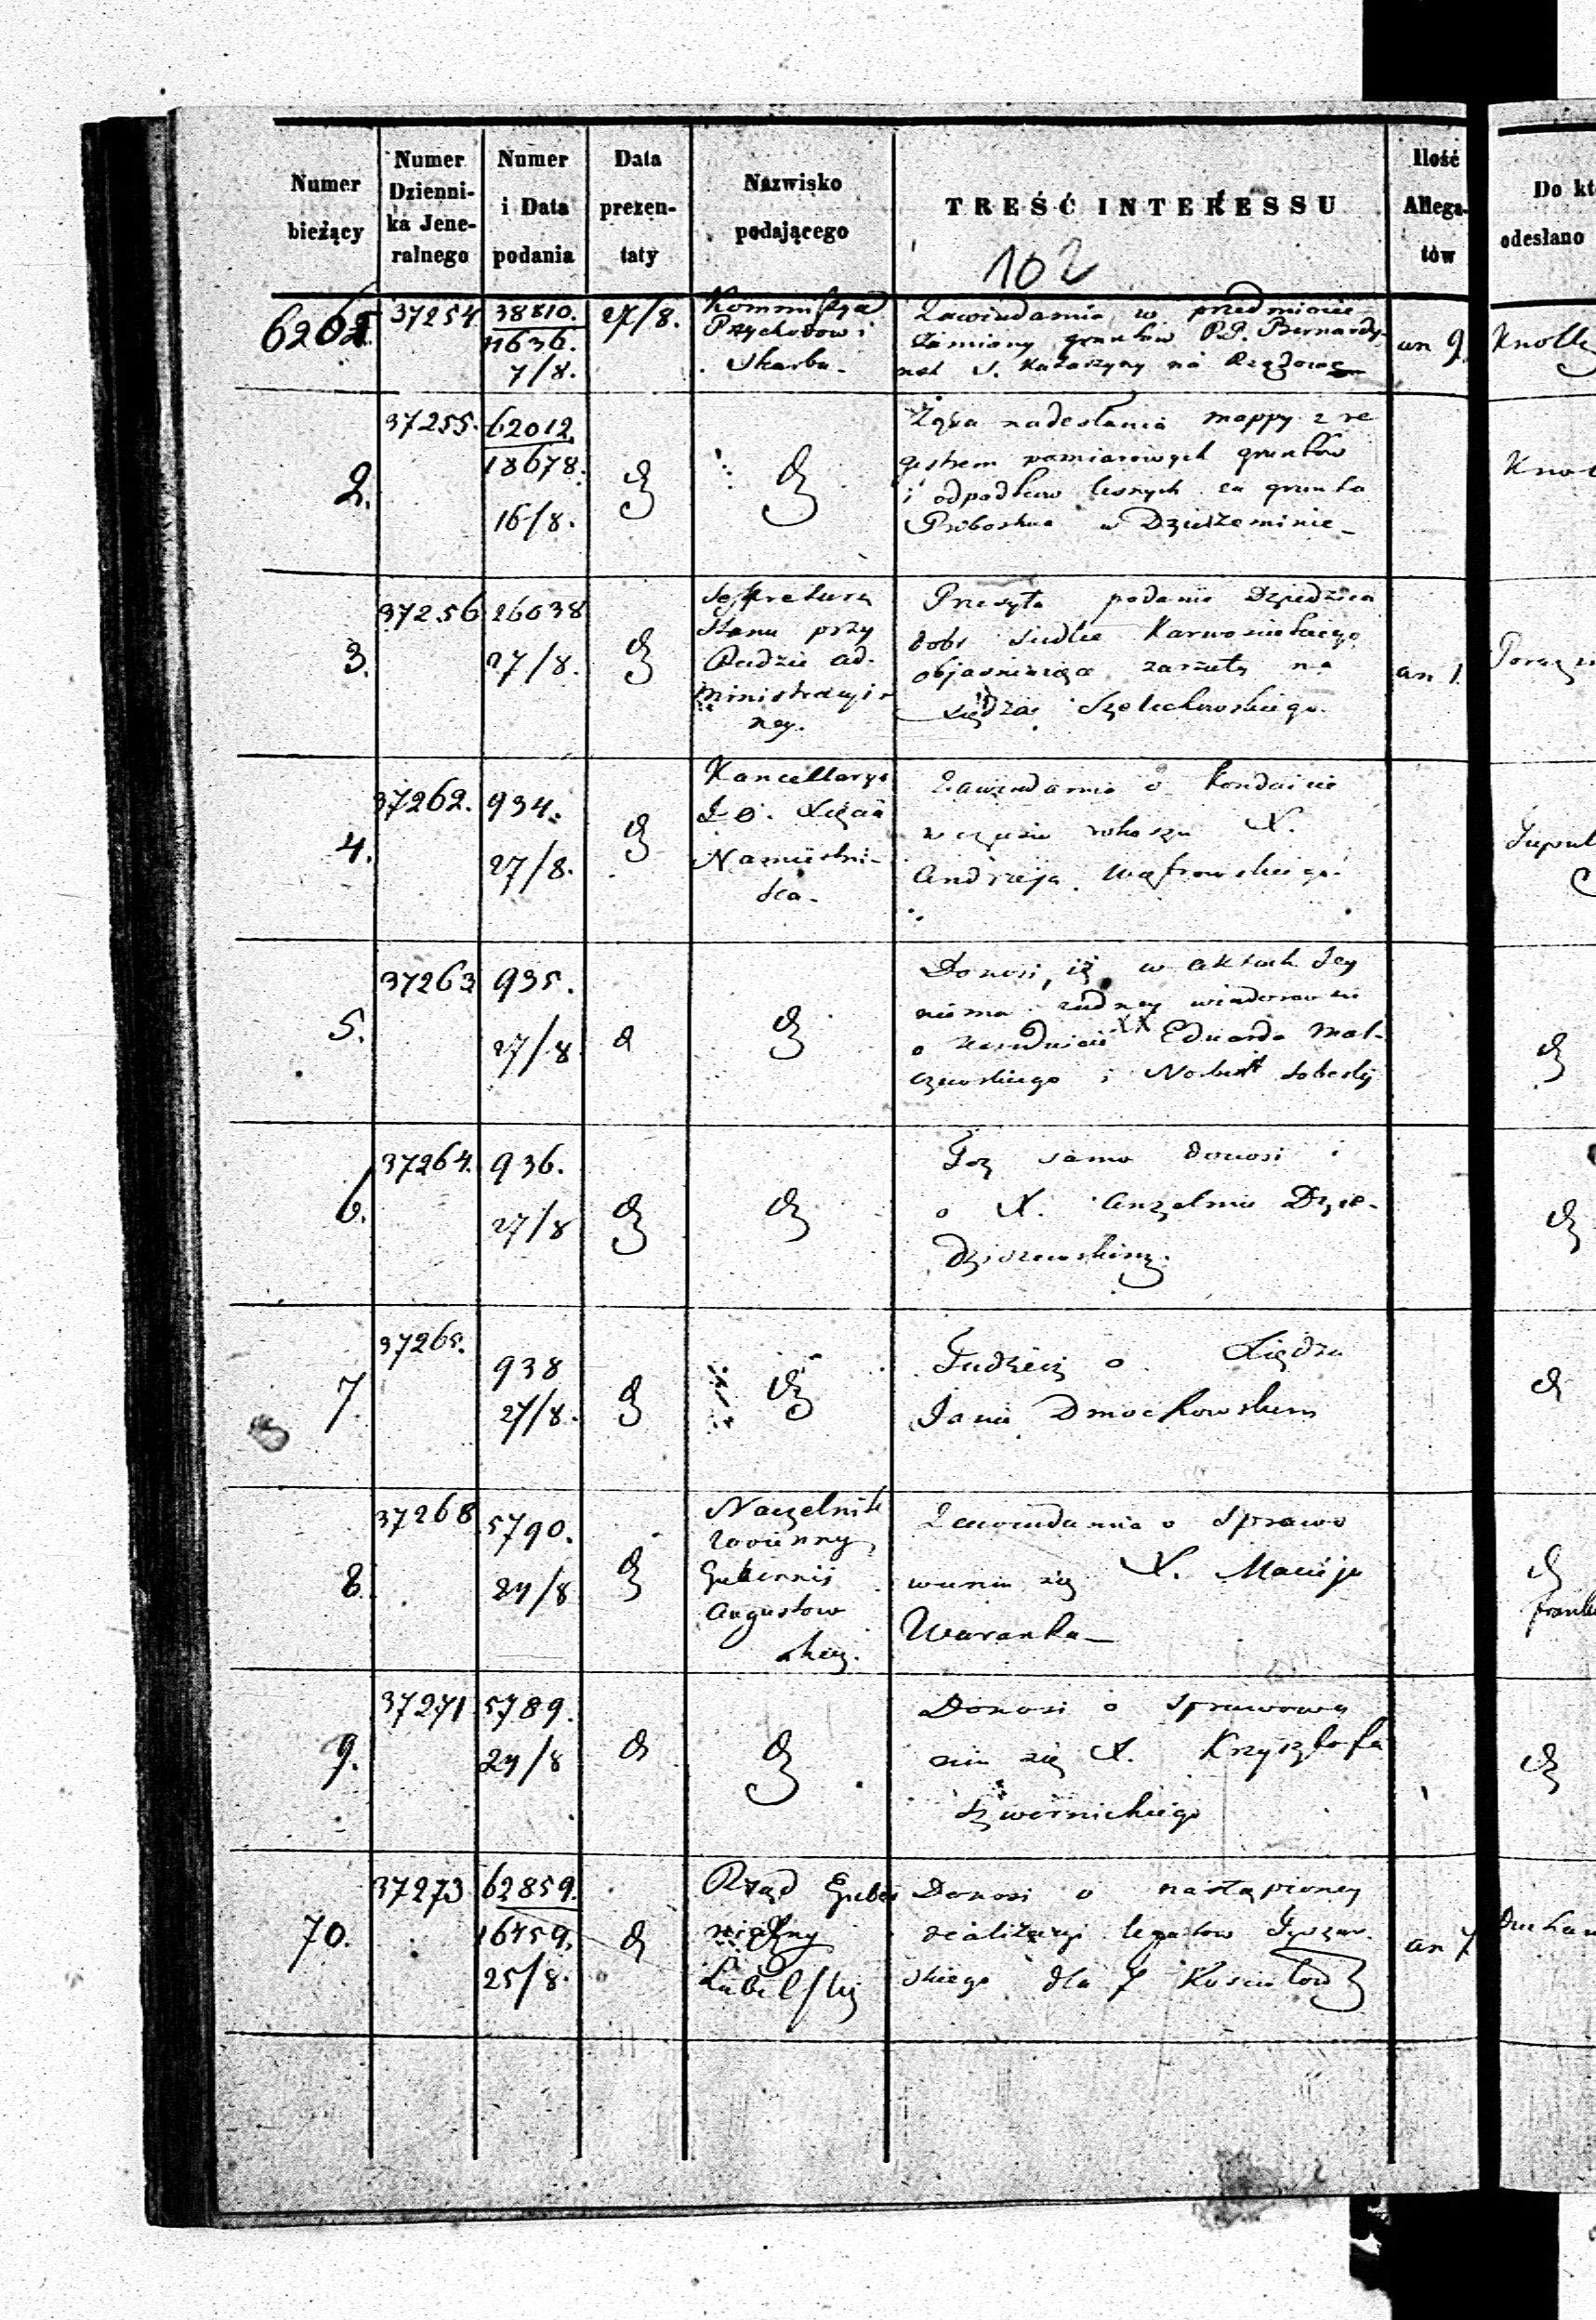 Numer bieżący
Numer Dzienni-ka Jene-ralnego
Numer i Data podania
Data prezen-taty
Nazwisko podającego
TREŚĆ INTERESSU
Ilość Allega-tów
Do kt
odesłano
102
37254
38810.
11636.
7/8.
27/8.
Przychodow i
Skarbu.
Zawiadamia w przedmiocie
Zamiany gruntow P.P. Bernardy-
nek S. Katarzyny na Rządowe
an 9.
2.
37255.
62012.
18678.
16/8.
Żąda nadesłania mappy z re
gestrem pomiarowych gruntów
i odpadkow lesnych za grunta
Probostwa w
3.
37256
26038
27/8.
Sekretarz
Stanu przy
Radzie ad-
ministracyi
ney.
Przesyła podanie Dziedzica
dobr Siedlce
objasniające zarzuty na
Księdza
an 1.
4.
37262.
934.
27/8.
Kancellarya
J.O. Xięcia
Namiestni-
ka.
Zawiadamia o konduicie
w czasie rokoszu X.
Andrzeja
5.
37263
935.
27/8
Donosi, iż w aktach Jey
niema żadney wiadomosci
o konduicie XX Eduarda Mal-
czewskiego i Norberta
6.
37264.
936.
27/8
Toż samo donosi i
o X. Anzelmie Dzie-
7.
37265.
938
27/8.
Tudzież o Xiędzu
Janie Dmochowskim
8.
37268
5790.
24/8
Naczelnik
woienny
Gubernii
Augustow
skiey.
Zawiadamia o sprawo
waniu się X. Macieja
Waranka
9.
37271
5789.
24/8
Donosi o sprawowa
niu się X. Krzysztofa
70.
37273
62859.
16459.
25/8.
Rząd Guber
nialny
Lubelski
Donosi o nastąpioney
realizacyi legatow
skiego dla 7 Kosciołow
an 7.